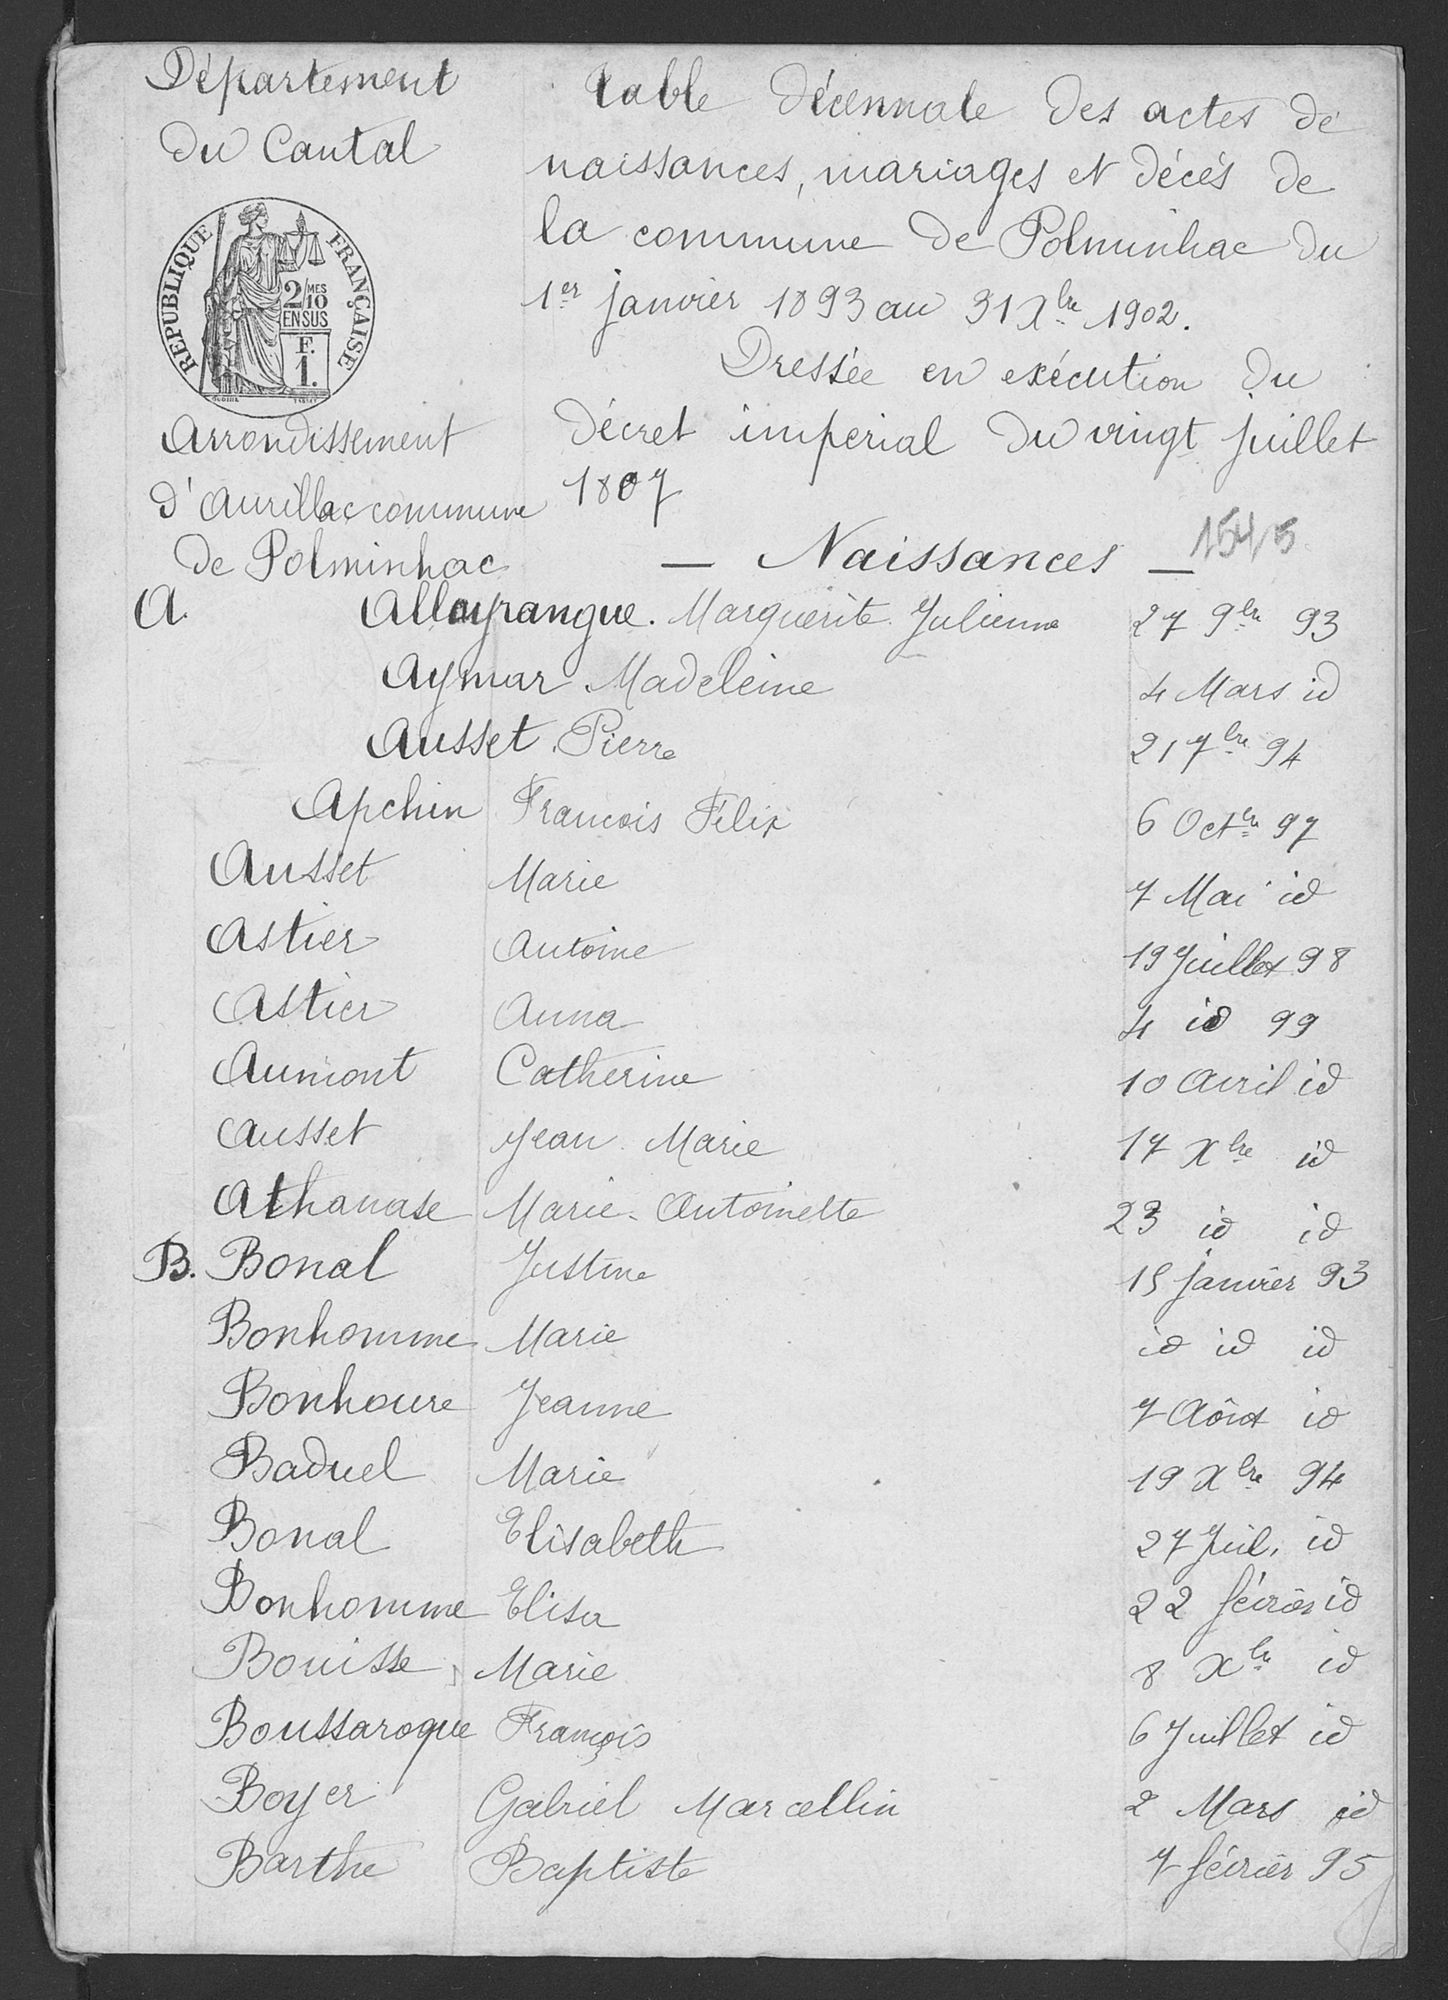 Département
du Cantal
RÉPUBLIQUE FRANÇAISE
2/10 MES
EN SUS
F.
1.
Arrondissement
d'Aurillac commune
de Polminhac
table décennale des actes de
naissances, mariages et décés de
la commune de Polminhac du
1er janvier 1893 au 31 Xbre 1902.
Dressée en exécution du
décret impérial du vingt juillet
1807
— Naissances — 1545
A. Alleyrangue. Marguerite Julienne 27 9bre 93
Aymar Madeleine 4 Mars id
Ausset Pierre 21 7bre 94
Apchin François Félix 6 Octbre 97
Ausset Marie 7 Mai id
Astier Antoine 19 Juillet 98
Astier Anna 4 id 99
Aumont Catherine 10 Avril id
Ausset Jean Marie 17 Xbre id
Athanase Marie-Antoinette 23 id id
B. Bonal Justine 15 janvier 93
Bonhomme Marie id id id
Bonhoure Jeanne 7 Aôut id
Baduel Marie 19 Xbre 94
Bonal Elisabeth 27 Juil. id
Bonhomme Elisa 22 février id
Bouisse Marie 8 Xbre id
Boussaroque François 6 Juillet id
Boyer Gabriel Marcellin 2 Mars id
Barthe Baptiste 7 février 95